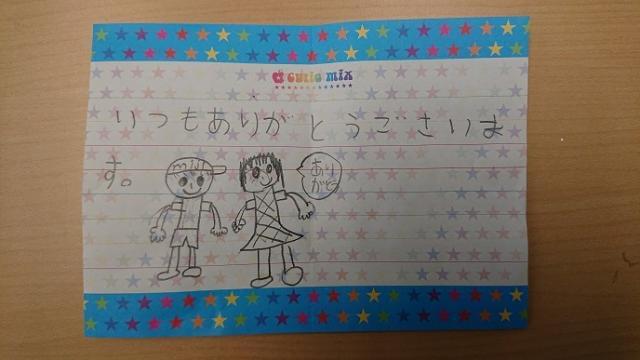 cutie mix
いつもありがとうございま
す。
あり
がとう